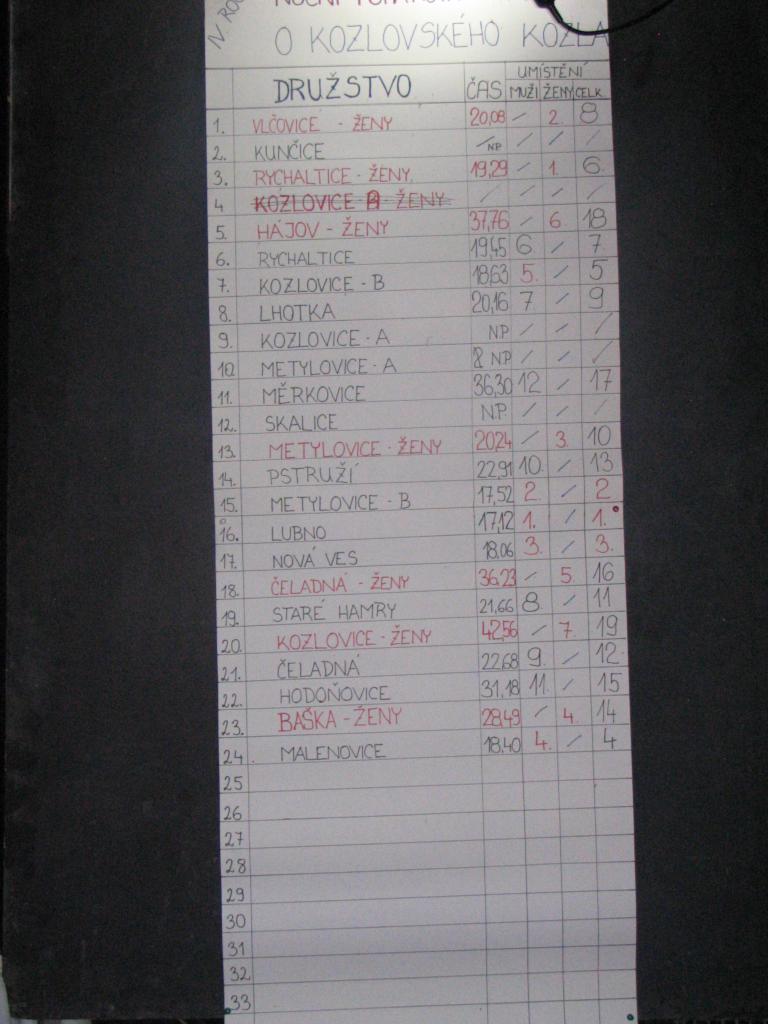 IV. ROČ
NOČNÍ
O KOZLOVSKÉHO KOZLA
DRUŽSTVO ČAS UMÍSTĚNÍ
MUŽI ŽENY CELK.
1. VLČOVICE - ŽENY 20,08 / 2. 8
2. KUNČICE / NP / / /
3. RYCHALTICE - ŽENY 19,29 / 1. 6.
4 KOZLOVICE B - ŽENY / / / /
5. HÁJOV - ŽENY 37,76 / 6. 18
6. RYCHALTICE 19,45 6. / 7.
7. KOZLOVICE - B 18,63 5. / 5
8. LHOTKA 20,16 7. / 9
9. KOZLOVICE - A NP / / /
10. METYLOVICE - A NP / / /
11. MĚRKOVICE 36,30 12 / 17
12. SKALICE N.P. / / /
13. METYLOVICE - ŽENY 20,24 / 3. 10
14. PSTRUŽÍ 22,91 10. / 13
15. METYLOVICE - B 17,52 2. / 2.
16. LUBNO 17,12 1. / 1.
17. NOVÁ VES 18.06 3. / 3.
18. ČELADNÁ - ŽENY 36,23 / 5. 16
19. STARÉ HAMRY 21,66 8. / 11
20. KOZLOVICE - ŽENY 42,56 / 7. 19
21. ČELADNÁ 22,68 9. / 12
22. HODOŇOVICE 31,18 11. / 15
23. BAŠKA - ŽENY 28,49 / 4. 14
24. MALENOVICE 18.40 4. / 4
25
26
27
28
29
30
31
32
33